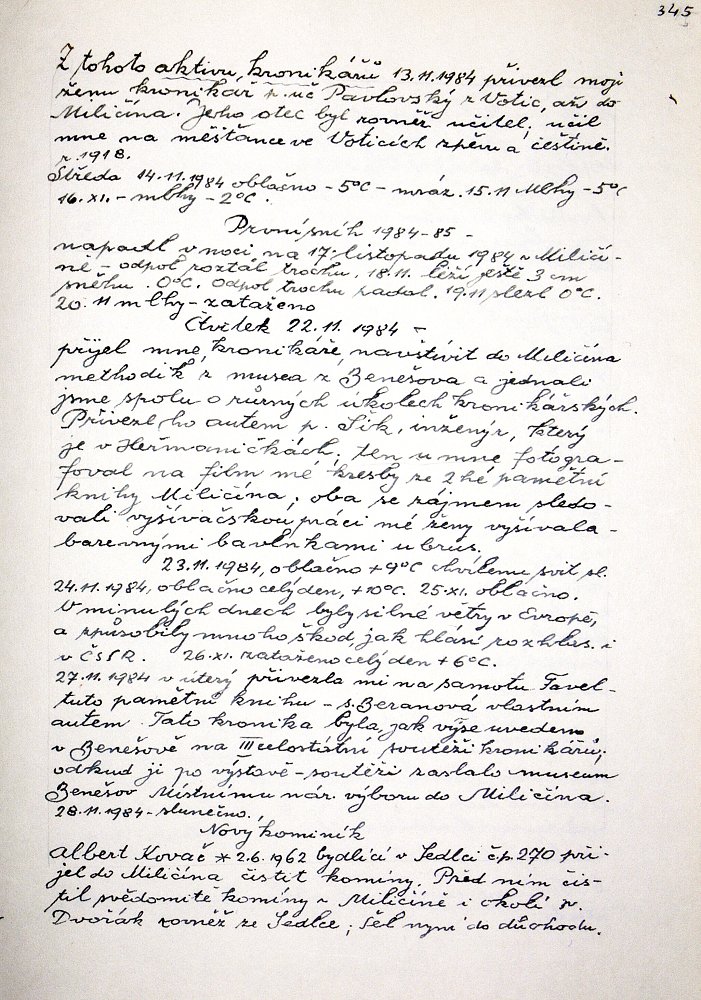 345
Z tohoto aktivu kronikářů 13.11.1984 přivezl moji
ženu kronikář p. uč Pavlovský z Votic, až do
Miličína. Jeho otec byl rovněž učitel, učil
mne na měšťance ve Voticích zpěvu a češtině.
r. 1918.
Středa 14.11.1984 oblačno - 5°C - mráz. 15.11 Mlhy - 5°C
16.XI. - mlhy - 2°C.
První sníh 1984-85 -
napadl v noci na 17. listopadu 1984 v Miličí-
ně - odpol roztál trochu. 18.11. leží ještě 3 cm
sněhu. 0°C. Odpol trochu padal. 19.11 slezl 0°C.
20.11 mlhy - zataženo
Čtvrtek 22.11.1984 -
přijel mne, kronikáře, navštívit do Miličína
methodik z musea z Benešova a jednali
jsme spolu o různých úkolech kronikářských.
Přivezl ho autem p. Šik, inženýr, který
je v Heřmaničkách, ten u mne fotogra-
foval na film mé kresby ze 2hé pamětní
knihy Miličína; oba se zájmem sledo-
vali vyšívačskou práci mé ženy vyšívala-
barevnými bavlnkami ubrus.
23.11.1984, oblačno +9°C chvílemi svit sl.
24.11.1984, oblačno celý den, +10°C. 25.XI. oblačno.
V minulých dnech byly silné větry v Evropě,
a způsobily mnoho škod, jak hlásí rozhlas. i
v ČSSR. 26.XI. zataženo celý den +6°C.
27.11.1984 v úterý přivezla mi na samotu Favel-
tuto pamětní knihu - s. Beranová vlastním
autem. Tato kronika byla, jak výše uvedeno
v Benešově na III celostátní soutěži kronikářů;
odkud ji po výstavě - soutěži zaslalo museum
Benešov Místnímu nár. výboru do Miličína.
28.11.1984 - slunečno.
Nový kominík
Albert Kováč * 2.6.1962 bydlící v Sedlci č.p. 270 při-
jel do Miličína čistit komíny. Před ním čis-
til svědomitě komíny v Miličíně i okolí p.
Dvořák rovněž ze Sedlce; šel nyní do důchodu.